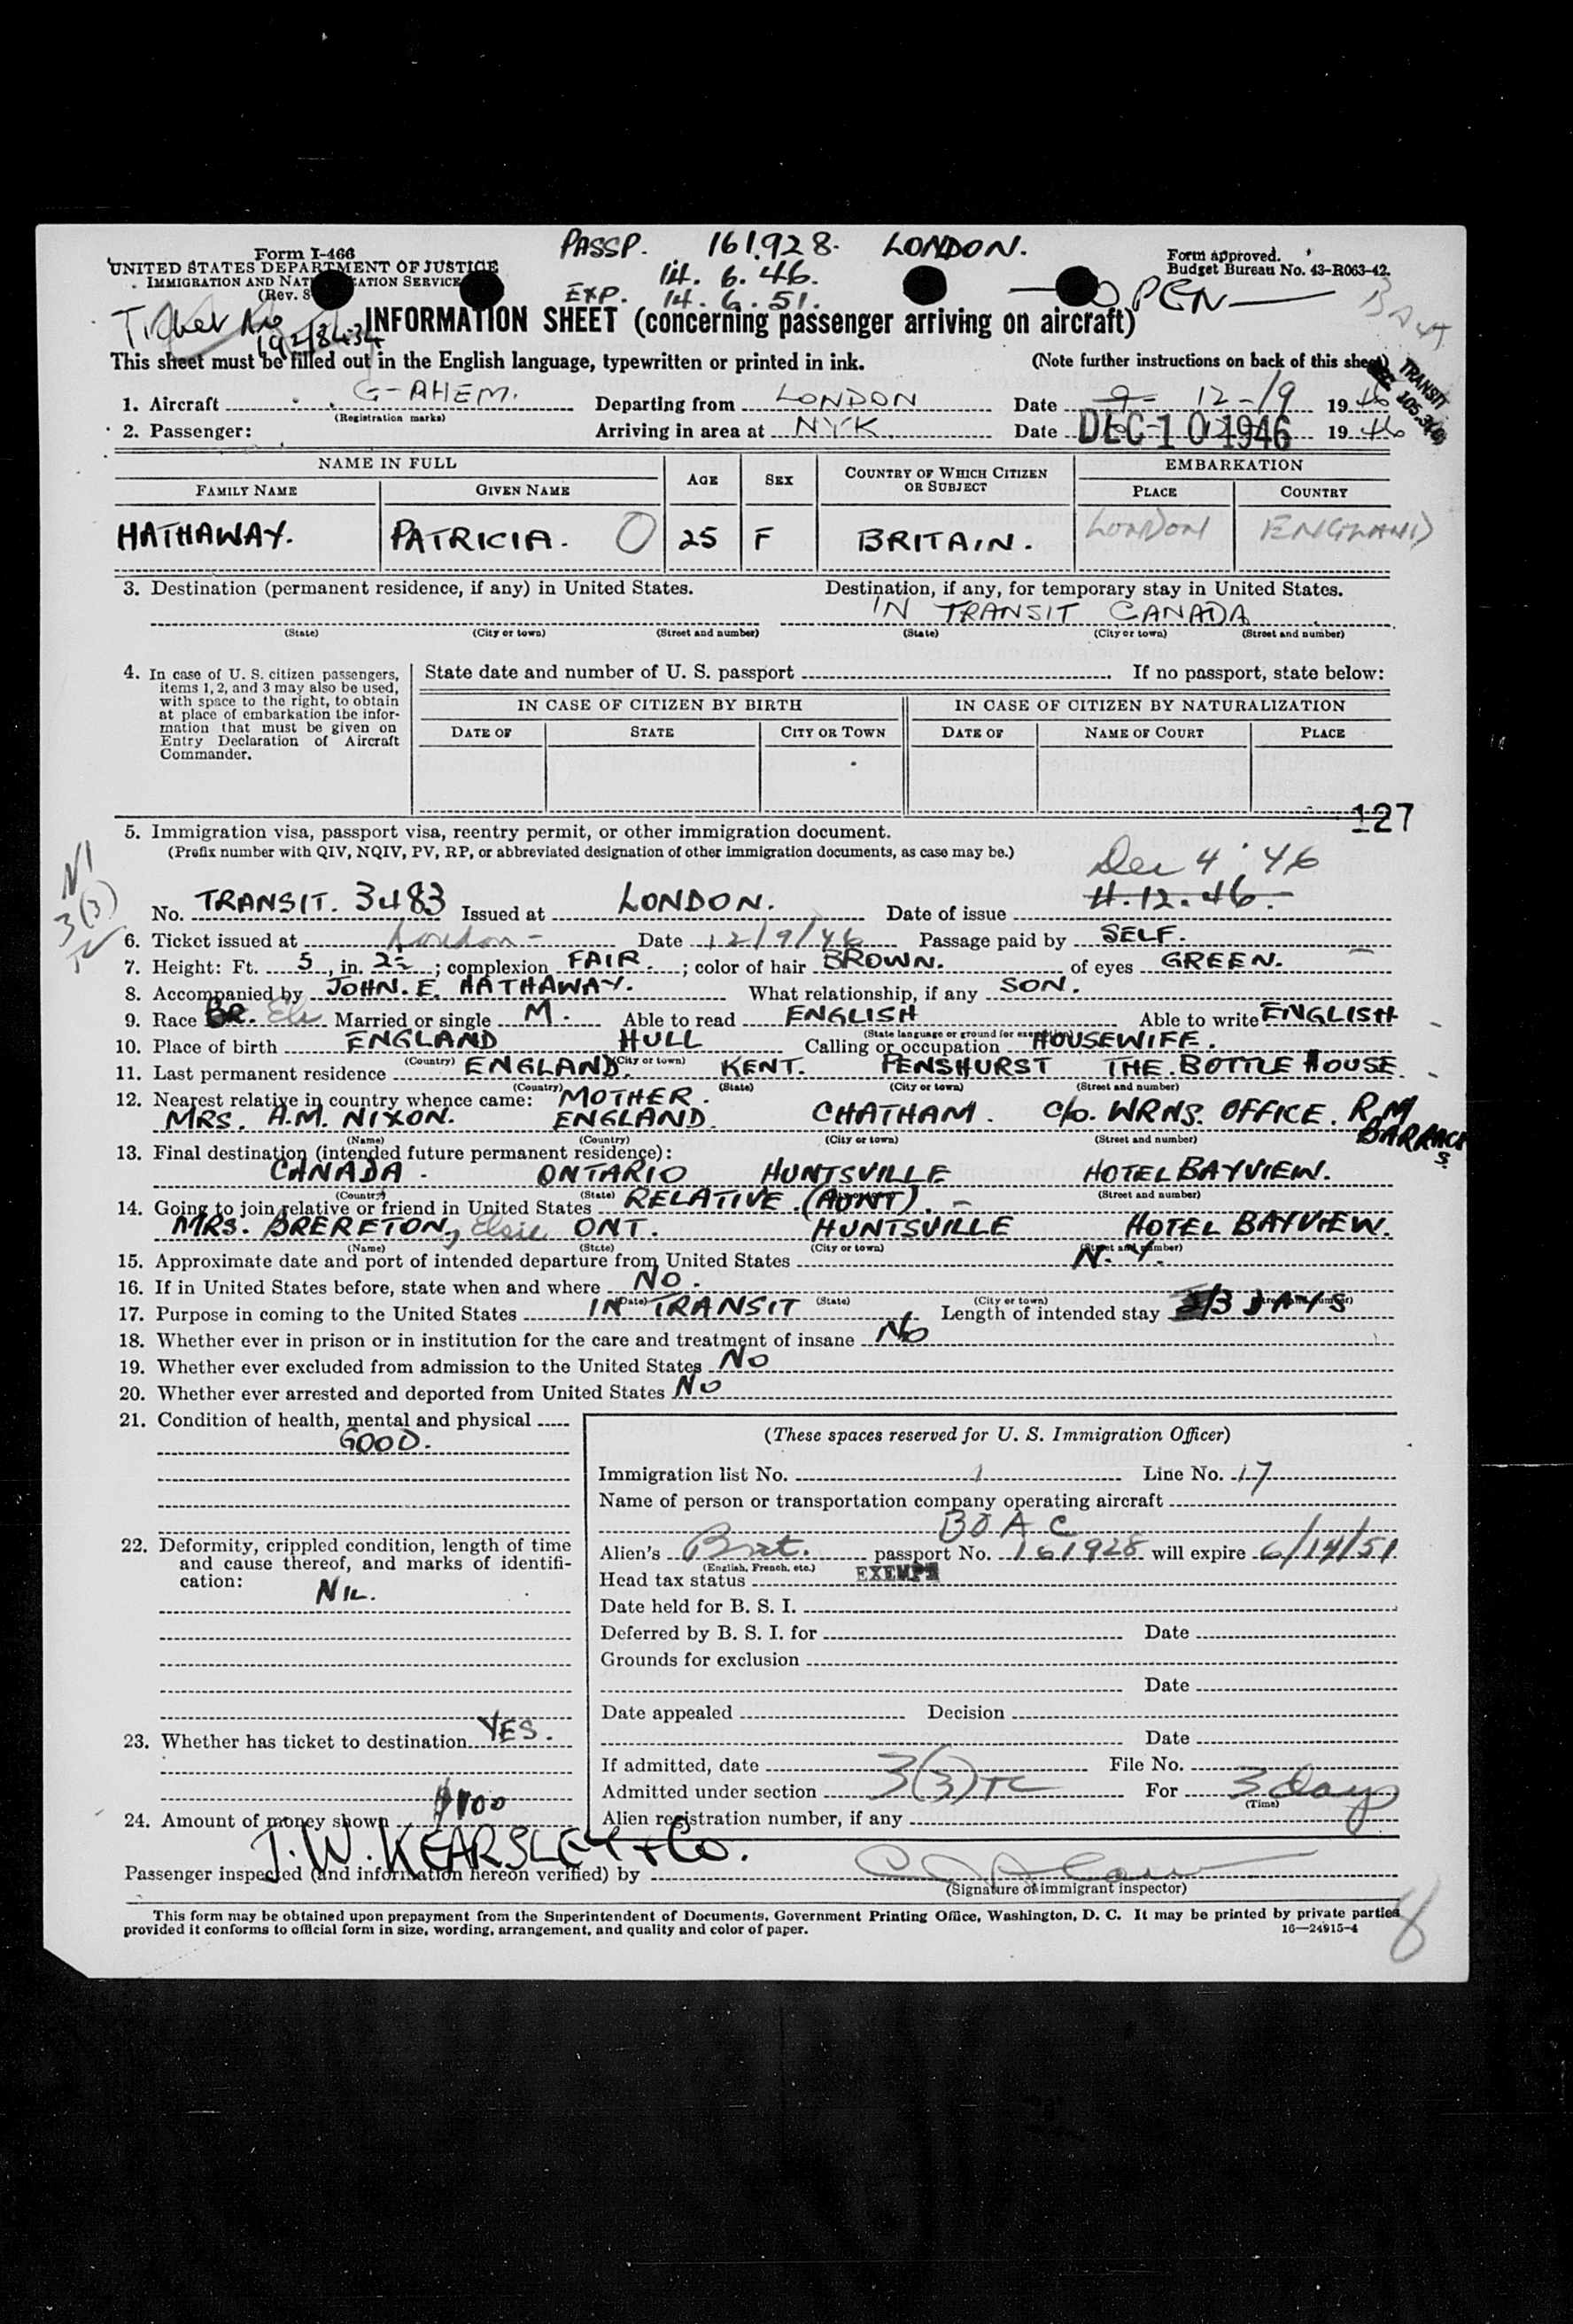 Form I-466
UNITED STATES DEPARTMENT OF JUSTICE
IMMIGRATION AND NAT ATION SERVICE
(Rev. 8
PASSP. 161928. LONDON.
14. 6. 46.
EXP. 14. 6. 51.
OPEN
Form approved.
Budget Bureau No. 43-R063-42.
Ticket No
192/8434
INFORMATION SHEET (concerning passenger arriving on aircraft)
This sheet must be filled out in the English language, typewritten or printed in ink. (Note further instructions on back of this sheet)
TRANSIT
1. Aircraft G-AHEM. Departing from LONDON Date 9- 12-/9 1946
(Registration marks)
2. Passenger: Arriving in area at NYK. Date DEC 10 1946 1946
NAME IN FULL AGE SEX COUNTRY OF WHICH CITIZEN OR SUBJECT EMBARKATION
FAMILY NAME GIVEN NAME PLACE COUNTRY
HATHAWAY. PATRICIA. O 25 F BRITAIN. LONDON ENGLAND
3. Destination (permanent residence, if any) in United States. Destination, if any, for temporary stay in United States.
IN TRANSIT CANADA
(State) (City or town) (Street and number) (State) (City or town) (Street and number)
4. In case of U. S. citizen passengers, items 1, 2, and 3 may also be used, with space to the right, to obtain at place of embarkation the information that must be given on Entry Declaration of Aircraft Commander.
State date and number of U. S. passport If no passport, state below:
IN CASE OF CITIZEN BY BIRTH IN CASE OF CITIZEN BY NATURALIZATION
DATE OF STATE CITY OR TOWN DATE OF NAME OF COURT PLACE
127
5. Immigration visa, passport visa, reentry permit, or other immigration document.
(Prefix number with QIV, NQIV, PV, RP, or abbreviated designation of other immigration documents, as case may be.)
Dec 4 '46
3(3)
No. TRANSIT. 3483 Issued at LONDON. Date of issue 4.12.46.
6. Ticket issued at London - Date 12/9/46 Passage paid by SELF.
7. Height: Ft. 5, in. 2½; complexion FAIR.; color of hair BROWN. of eyes GREEN.
8. Accompanied by JOHN. E. HATHAWAY. What relationship, if any SON.
9. Race BR. Married or single M. Able to read ENGLISH Able to write ENGLISH
(State language or ground for exemption)
10. Place of birth ENGLAND HULL Calling or occupation HOUSEWIFE.
(Country) (City or town)
11. Last permanent residence ENGLAND. KENT. PENSHURST THE BOTTLE HOUSE.
(Country) (State) (City or town) (Street and number)
12. Nearest relative in country whence came: MOTHER.
MRS. A.M. NIXON. ENGLAND. CHATHAM. c/o. WRNS. OFFICE. R.M BARRACKS.
(Name) (Country) (City or town) (Street and number)
13. Final destination (intended future permanent residence):
CANADA - ONTARIO HUNTSVILLE HOTEL BAYVIEW.
(Country) (State) (Street and number)
14. Going to join relative or friend in United States RELATIVE. (AUNT). -
MRS. BRERETON, Elsie ONT. HUNTSVILLE HOTEL BAYVIEW.
(Name) (State) (City or town) (Street and number)
15. Approximate date and port of intended departure from United States N.Y.
16. If in United States before, state when and where NO.
(Date) (State) (City or town) (Street and number)
17. Purpose in coming to the United States IN TRANSIT Length of intended stay 2/3 DAYS
18. Whether ever in prison or in institution for the care and treatment of insane No
19. Whether ever excluded from admission to the United States No
20. Whether ever arrested and deported from United States No
21. Condition of health, mental and physical
GOOD.
22. Deformity, crippled condition, length of time and cause thereof, and marks of identification:
NIL.
23. Whether has ticket to destination YES.
24. Amount of money shown $100
(These spaces reserved for U. S. Immigration Officer)
Immigration list No. 1 Line No. 17
Name of person or transportation company operating aircraft
BOAC
Alien's Brit. passport No. 161928 will expire 6/14/51
(English, French, etc.)
Head tax status EXEMPT
Date held for B. S. I.
Deferred by B. S. I. for Date
Grounds for exclusion
Date
Date appealed Decision
Date
If admitted, date File No.
Admitted under section 3(3) TC For 3 days
(Time)
Alien registration number, if any
J.W. KEARSLEY & Co.
Passenger inspected (and information hereon verified) by
(Signature of immigrant inspector)
This form may be obtained upon prepayment from the Superintendent of Documents, Government Printing Office, Washington, D. C. It may be printed by private parties
provided it conforms to official form in size, wording, arrangement, and quality and color of paper. 16—24915-4
8